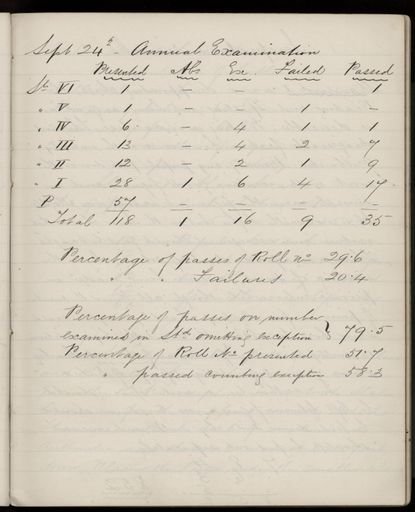 Sept 24th - Annual Examination
Presented Abs Ex. Failed Passed
St VI 1 - - 1
" V 1 - - 1 -
" IV 6 - 4 1 1
" III 13 - 4 2 7
" II 12 - 2 1 9
" I 28 1 6 4 17
P 57 - - - -
Total 118 1 16 9 35
Percentage of passes of Roll no 29.6
" " Failures 20.4
Percentage of passes on number
examined in Std omitting exception } 79.5
Percentage of Roll No presented 51.7
" passed counting exception 58.3